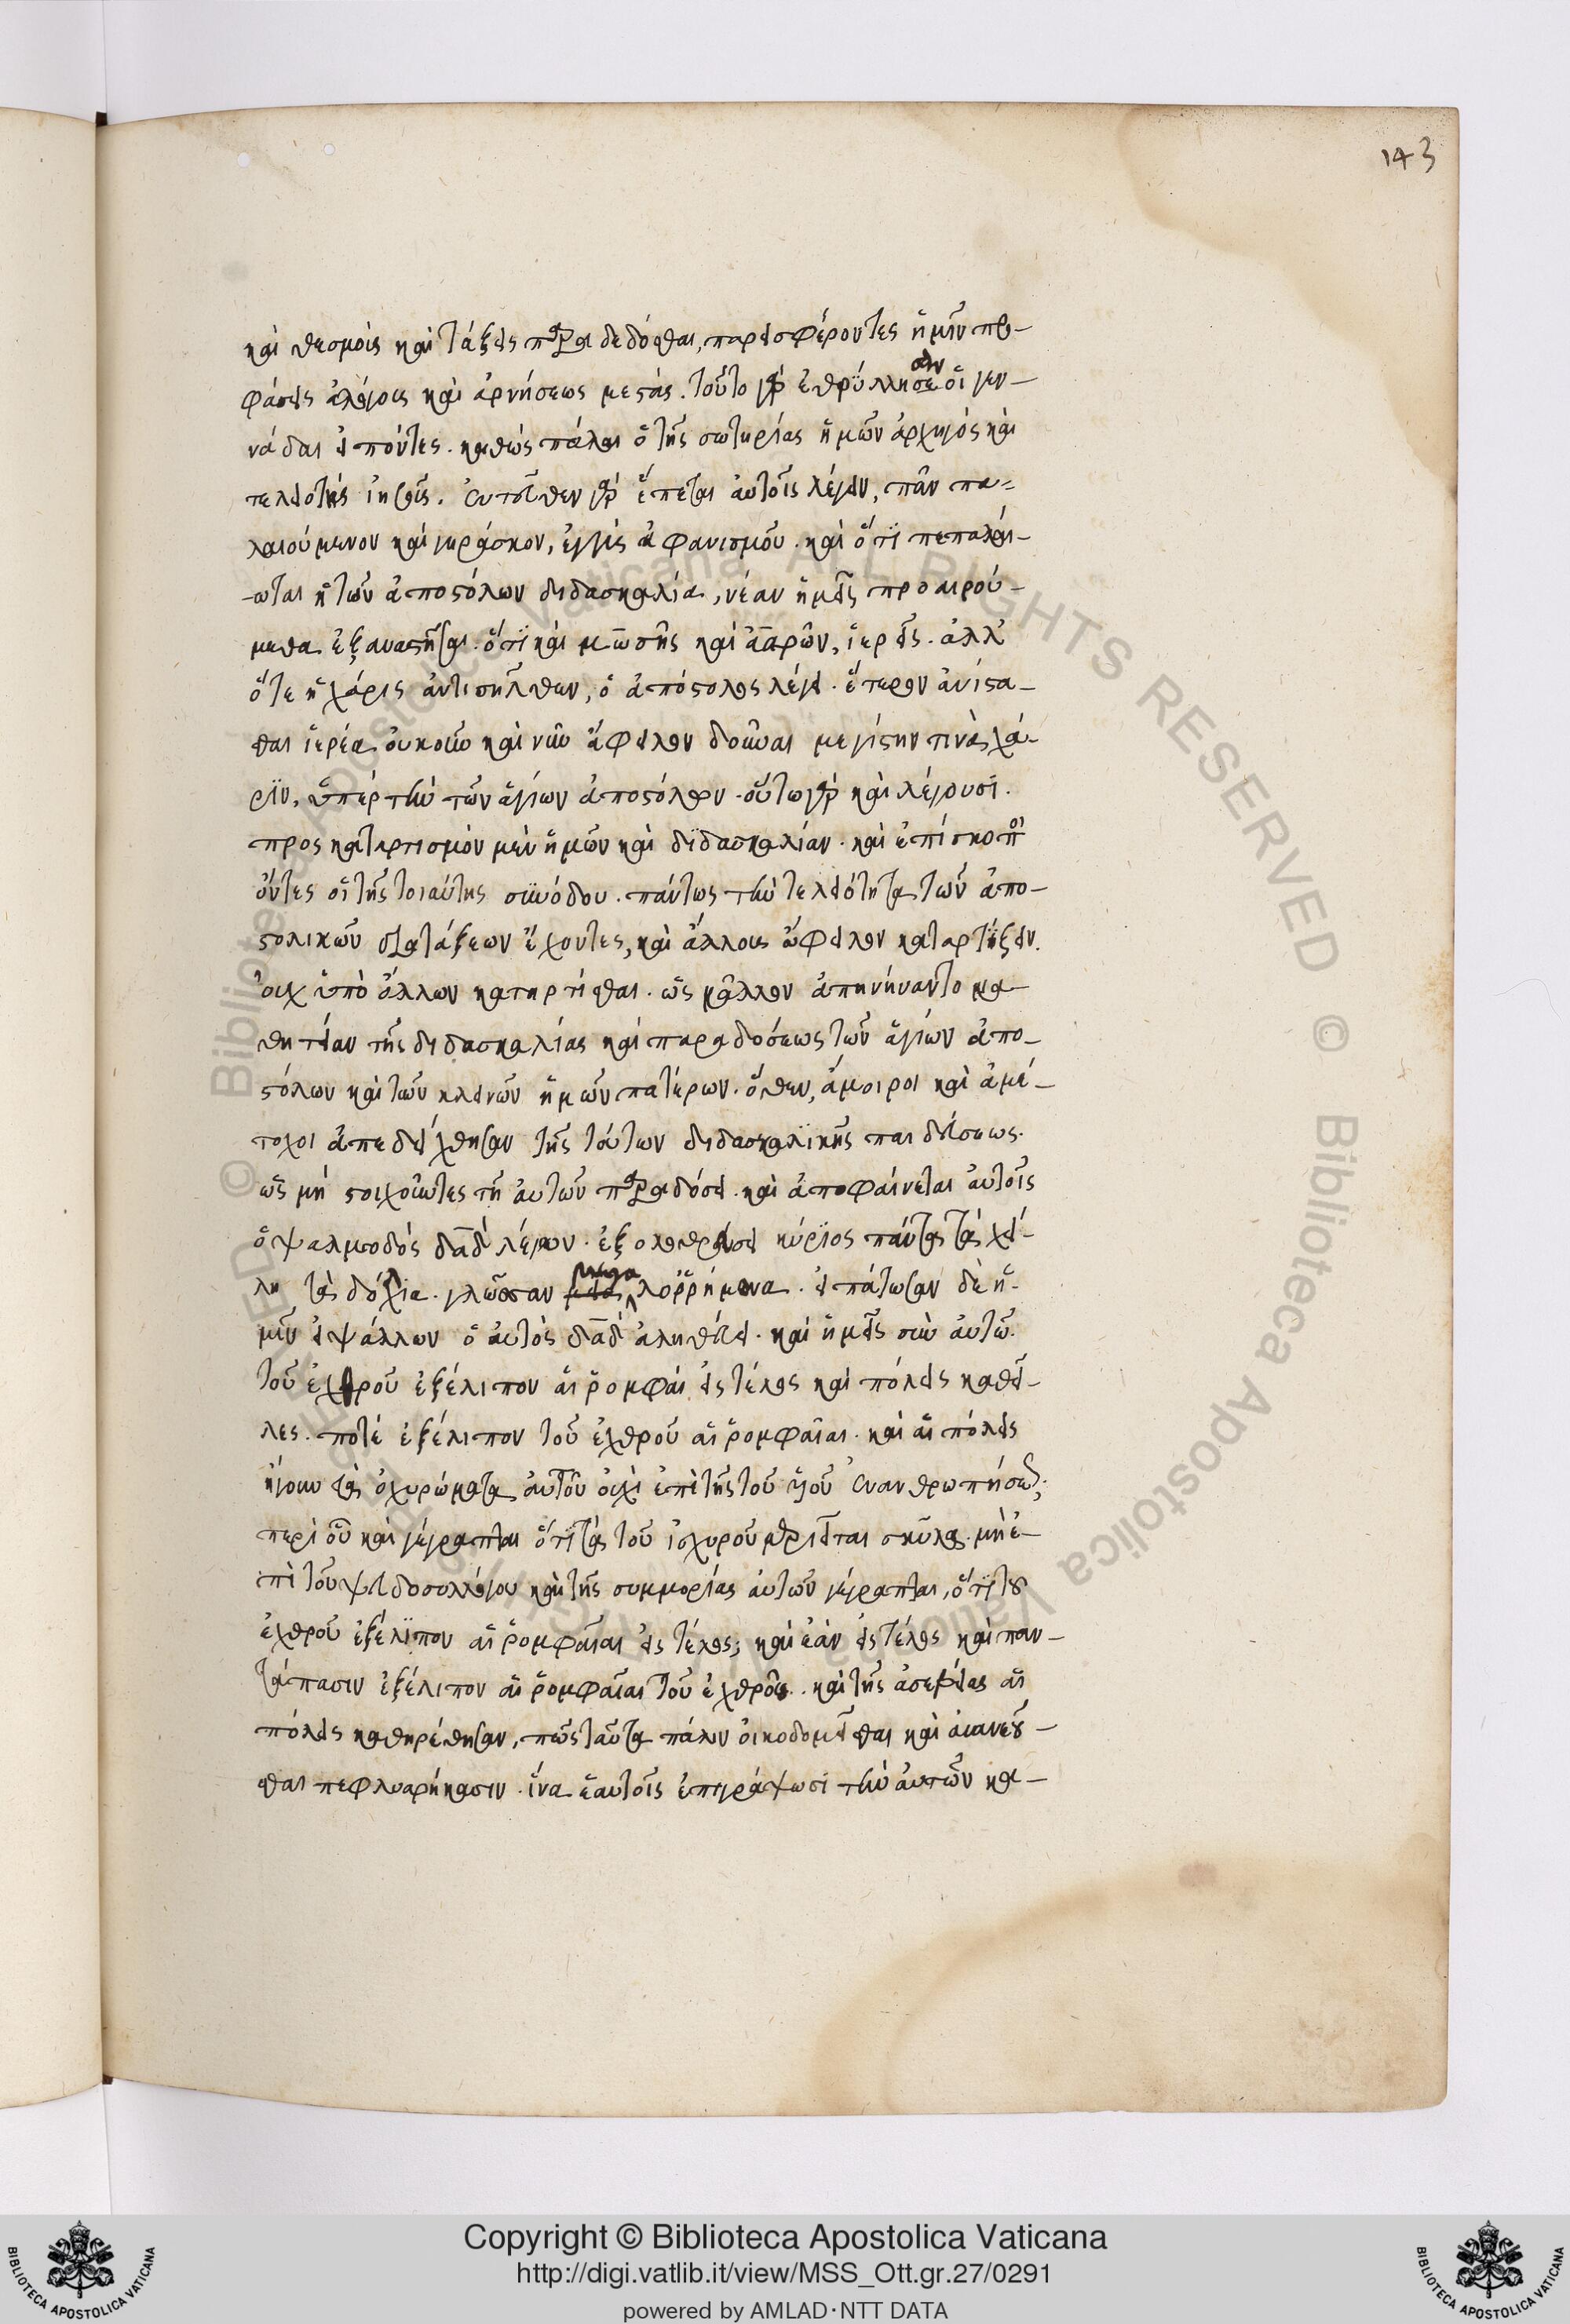 143
καὶ θεσμοὶς καὶ τάξεις παραδεδόσθαι, παρεισφέροντες ἡμῖν προ-
φάσεις ἀλόγους καὶ ἀρνήσεως μεστάς. τοῦτο γὰρ ἐθρύλλησαν οἱ γεν-
νάδαι εἰπόντες. καθὼς πάλαι ὁ τῆς σωτηρίας ἡμῶν ἀρχηγός καὶ
τελειοτὴς ἰησοῦς. ἐντεῦθεν γὰρ ἕπεται αὐτοῖς λέγειν, πᾶν πα-
λαιούμενον καὶ γηράσκον, ἐγγὺς ἀφανισμοῦ. καὶ ὅτι πεπαλαί-
-ωται ἡ τῶν ἀποστόλων διδασκαλία, νέαν ἡμεῖς προαιρού-
μεθα ἐξαναστῆσαι. ὅτι καὶ μωσῆς καὶ ἀαρὼν, ἱερεῖς. ἀλλ'
ὅτε ἡ χάρις ἀντισῆλθεν, ὁ ἀπόστολος λέγει. ἕτερον ἀνίστα-
σθαι ἱερέα. οὐκοῦν καὶ νῦν ὤφειλον δοῦναι μεγίστην τινὰ χά-
ριν, ὑπὲρ τὴν τῶν ἁγίων ἀποστόλων. οὕτω γὰρ καὶ λέγουσι.
προς καταρτισμὸν μὲν ἡμῶν καὶ διδασκαλίαν. καὶ ἐπίσκοποι
ὄντες οἱ τῆς τοιαύτης συνόδου. πάντως τὴν τελειότητα τῶν ἀπο-
στολικῶν διατάξεων ἔχοντες, καὶ ἄλλους ὤφειλον καταρτίζειν.
οὐχ ὑπὸ ἄλλων κατηρτίσθαι. ὡς μᾶλλον ἀπηνήναντο μα-
θητείαν τῆς διδασκαλίας καὶ παραδόσεως τῶν ἁγίων ἀπο-
στόλων καὶ τῶν κλεινῶν ἡμῶν πατέρων. ὅθεν, ἄμοιροι καὶ ἀμέ-
τοχοι ἀπεδείχθησαν τῆς τούτων διδασκαλικῆς παιδεύσεως.
ὡς μὴ στοιχοῦντες τῇ αὐτῶν παραδόσει. καὶ ἀποφαίνεται αὐτοῖς
ὁ ψαλμωδὸς δαδ λέγων. ἐξολοθρεύσει κύριος πάντα τὰ χεί-
λη τὰ δόλια. γλῶσσαν μεγαλορρήμονα. εἰπάτωσαν δὲ ἡ-
μῖν εἰ ψάλλων ὁ αὐτὸς δαδ ἀληθεύει. καὶ ἡμεῖς σὺν αὐτῷ.
τοῦ ἐχθροῦ ἐξέλιπον αἱ ῥομφαῖ εἰς τέλος καὶ πόλεις καθεῖ-
λες. ποτὲ ἐξέλιπον τοῦ ἐχθροῦ αἱ ῥομφαῖαι. καὶ αἱ πόλεις
ἤγουν τὰ ὀχυρώματα αὐτοῦ οὐχὶ ἐπὶ τῆς τοῦ υἱοῦ ἐνανθρωπήσεως;
περὶ οὗ καὶ γέγραπται ὅτι τὰ τοῦ ἰσχυροῦ μεριεῖται σκῦλα. μὴ ἐ-
πὶ τοῦ ψευδοσυλλόγου καὶ τῆς συμμορίας αὐτῶν γέγραπται, ὅτι τοῦ
ἐχθροῦ ἐξέλιπον αἱ ῥομφαῖαι εἰς τέλος; καὶ ἐὰν εἰς τέλος καὶ παν-
τάπασιν ἐξέλιπον αἱ ῥομφαῖαι τοῦ ἐχθροῦ. καὶ τῆς ἀσεβείας αἱ
πόλεις καθηρέθησαν, πῶς ταῦτα πάλιν οἰκοδομεῖσθαι καὶ ἀνανεοῦ-
σθαι πεφλυαρήκασιν. ἵνα ἑαυτοῖς ἐπιγράψωσι τὴν αὐτῶν κα-
Copyright © Biblioteca Apostolica Vaticana
http://digi.vatlib.it/view/MSS_Ott.gr.27/0291
powered by AMLAD·NTT DATA